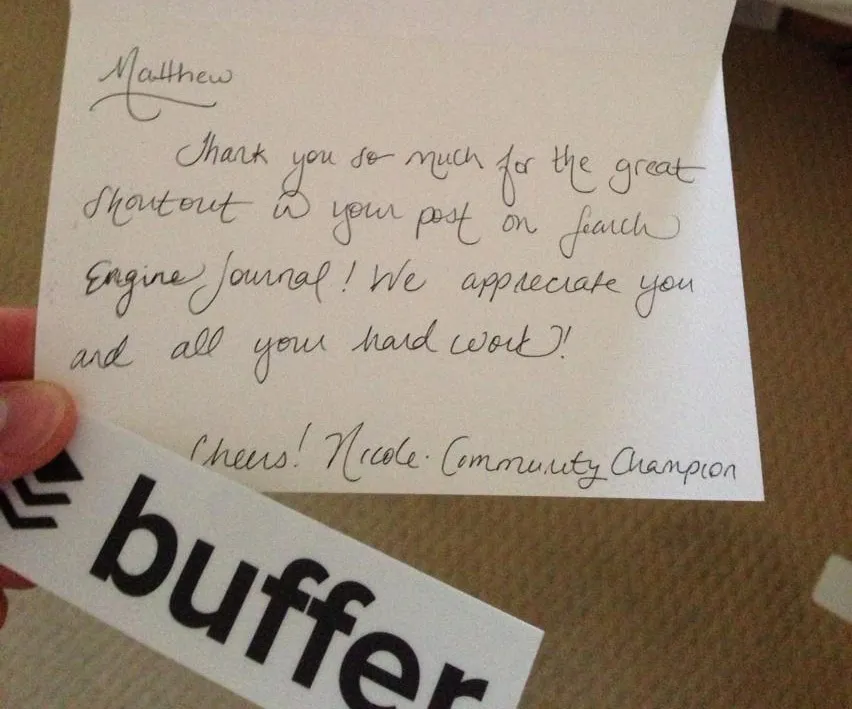 Matthew
Thank you so much for the great
Shoutout in your post on Search
Engine Journal! We appreciate you
and all your hard work!
Cheers! Nicole. Community Champion
buffer